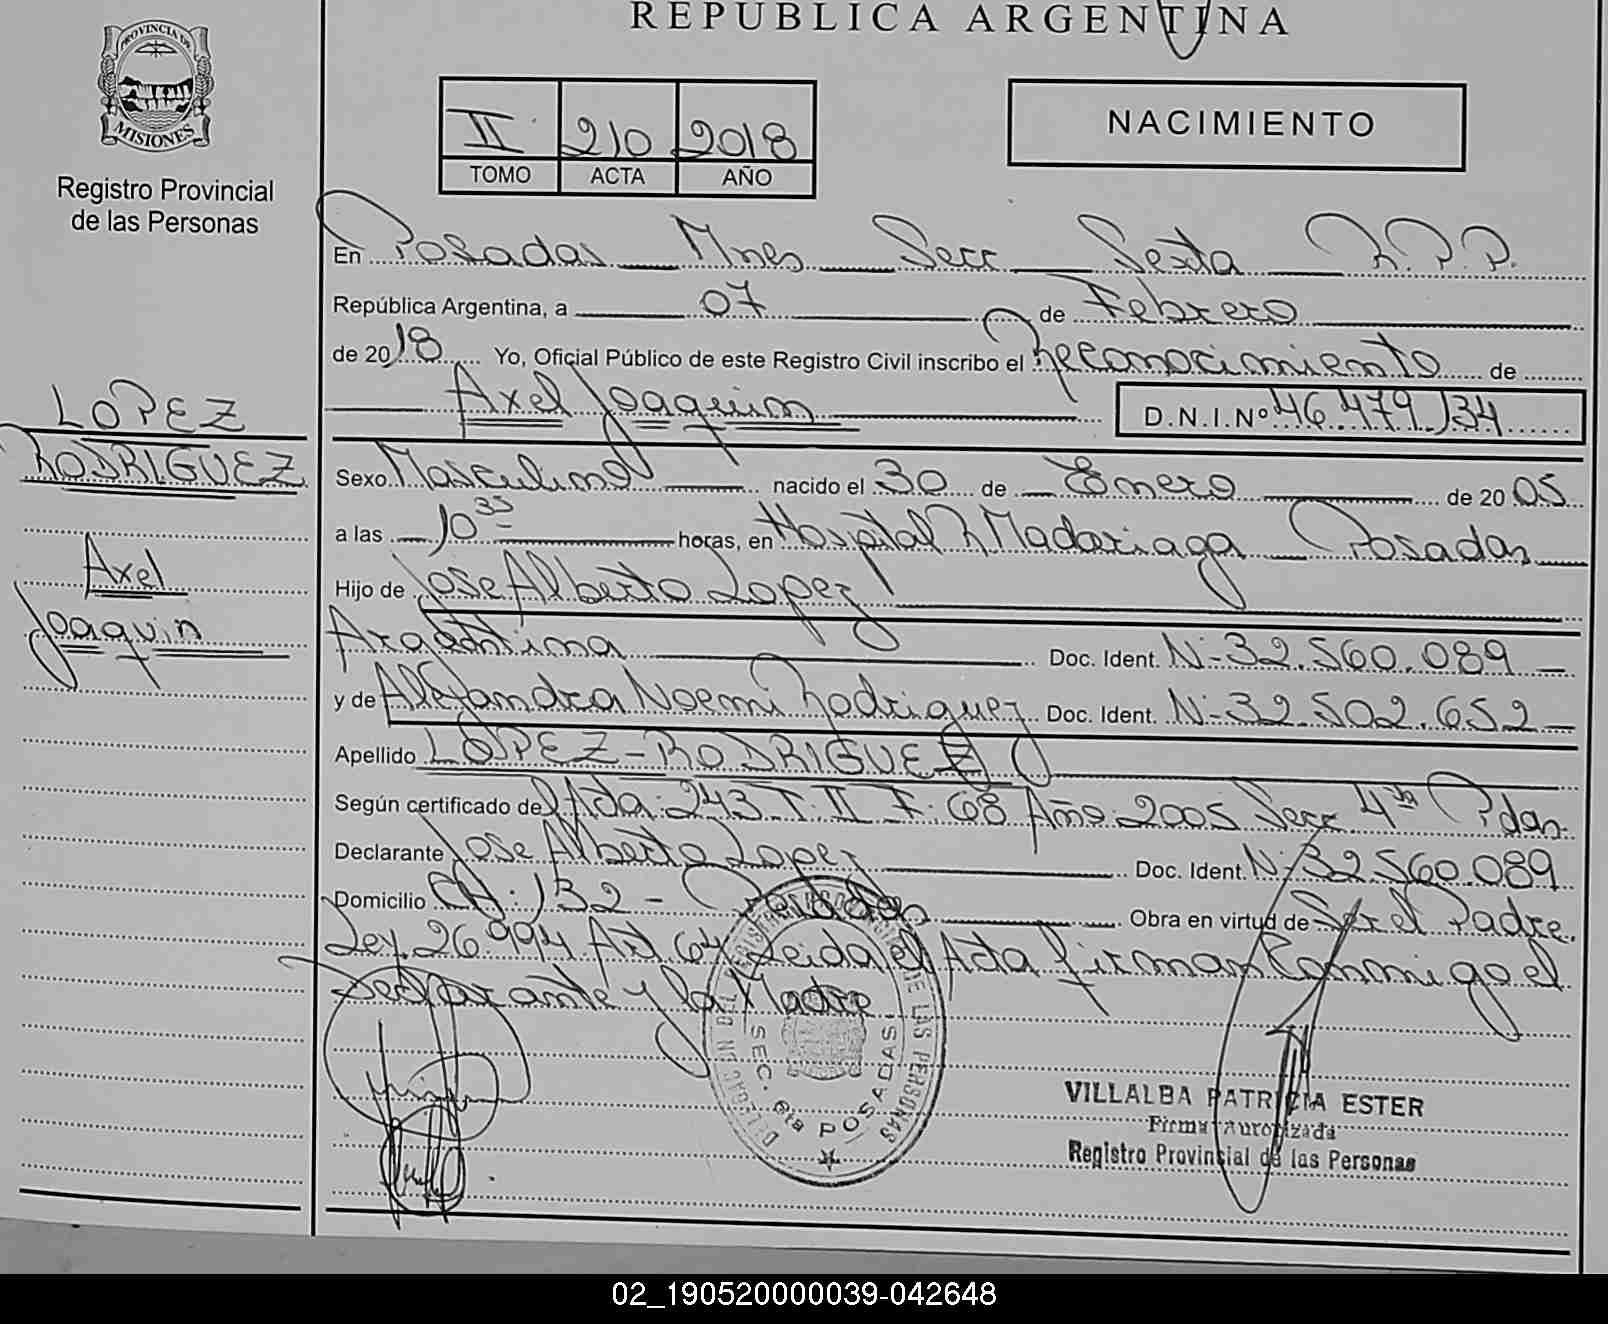 REPUBLICA ARGENTINA
PROVINCIA DE
MISIONES
Registro Provincial
de las Personas
II 210 2018
TOMO ACTA AÑO
NACIMIENTO
LOPEZ
RODRIGUEZ
Axel
Joaquin
En Posadas Mnes Secc Sexta R.P.P.
República Argentina, a 07 de Febrero
de 2018 Yo, Oficial Público de este Registro Civil inscribo el Reconocimiento de
Axel Joaquin D.N.I.Nº 46.479.134
Sexo Masculino nacido el 30 de Enero de 2005
a las 10 35 horas, en Hospital R Madariaga Posadas
Hijo de Jose Alberto Lopez
Argentina Doc. Ident. Nº 32.560.089
y de Alejandra Noemi Rodriguez Doc. Ident. Nº 32.502.652
Apellido LOPEZ-RODRIGUEZ
Según certificado de Acta: 243 T: II F: 68 Año: 2005 Secc 4ta Pdas.
Declarante Jose Alberto Lopez Doc. Ident. Nº 32.560.089
Domicilio CH: 132 - Posadas Obra en virtud de Ser el Padre.
Ley. 26.994 Art. 64 Leida el Acta firman Conmigo el
Declarante y la Madre
SEC. 6ta POSADAS
VILLALBA PATRICIA ESTER
Firma Autorizada
Registro Provincial de las Personas
02_190520000039-042648